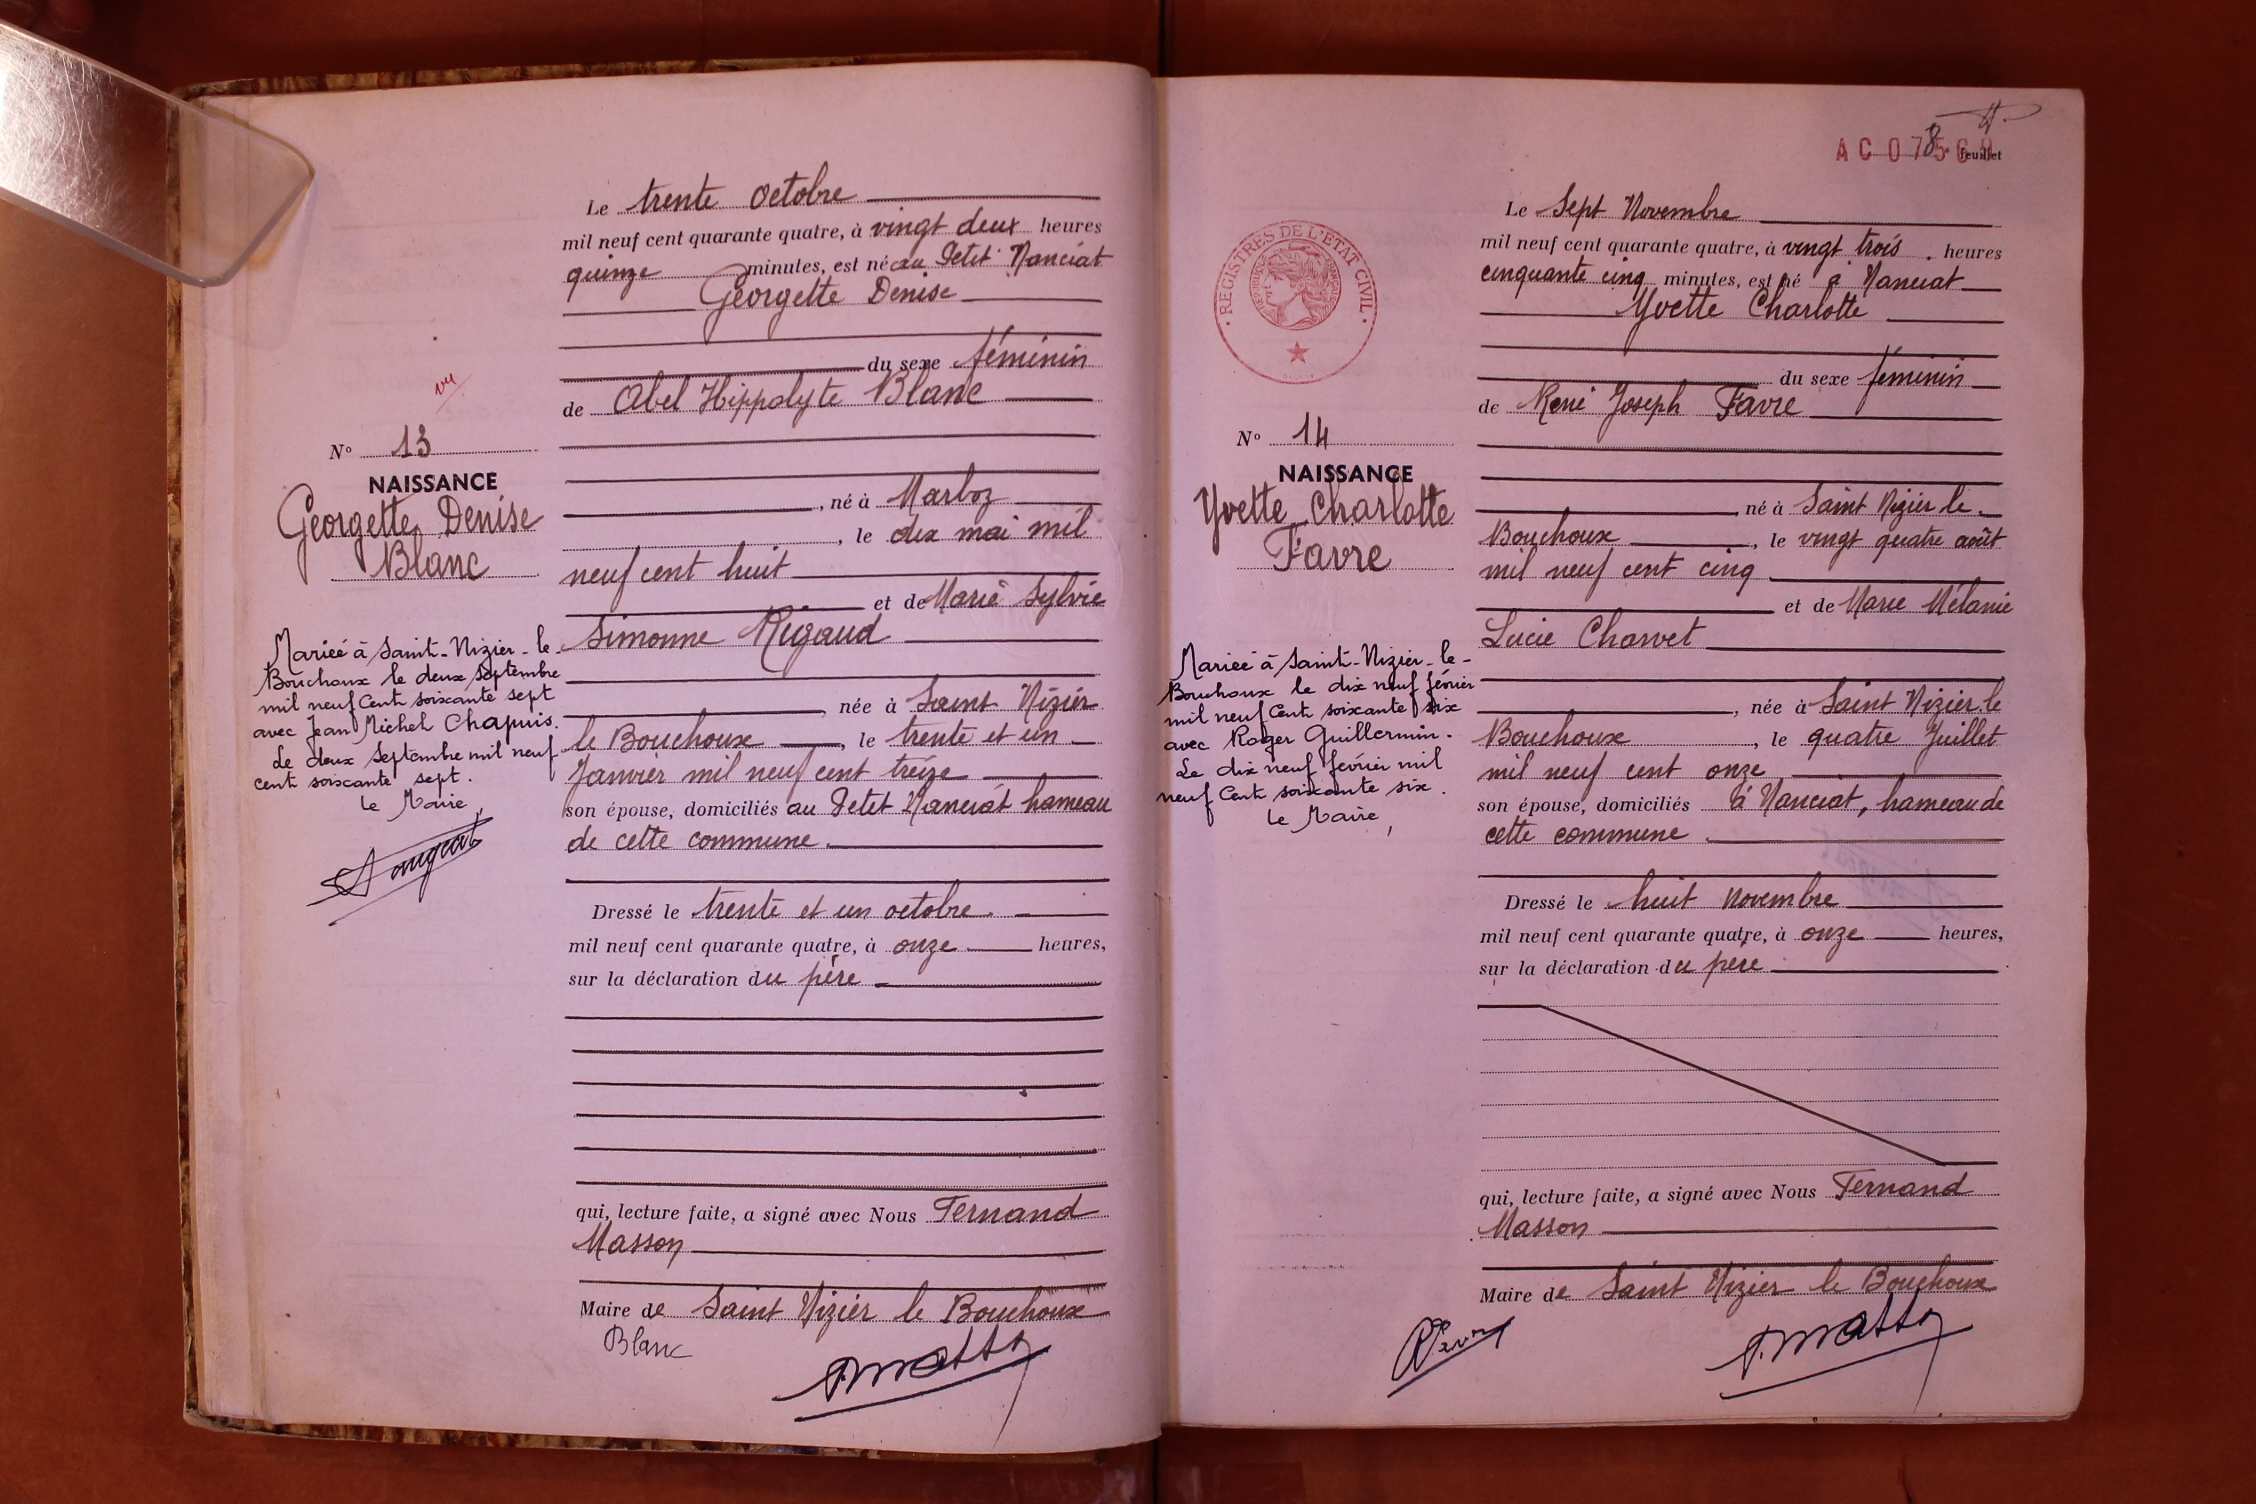 Le trente octobre
mil neuf cent quarante quatre, à vingt deux heures
quinze minutes, est né au Petit Nanciat
Georgette Denise
du sexe féminin
de Abel Hippolyte Blanc
vu
N° 13
NAISSANCE
Georgette Denise
Blanc
, né à Marboz
, le dix mai mil
neuf cent huit
et de Marie Sylvie
Simonne Rigaud
née à Saint Nizier
le Bouchoux , le trente et un
Janvier mil neuf cent treize
son épouse, domiciliés au Petit Nanciat hameau
de cette commune.
Mariée à Saint-Nizier-le-
Bouchoux le deux septembre
mil neuf cent soixante sept
avec Jean Michel Chapuis.
Le deux septembre mil neuf
cent soixante sept.
Le Maire,
Dressé le trente et un octobre.
mil neuf cent quarante quatre, à onze heures,
sur la déclaration du père
qui, lecture faite, a signé avec Nous Fernand
Masson
Maire de Saint Nizier le Bouchoux
Blanc
8. feuillet
Le Sept Novembre
mil neuf cent quarante quatre, à vingt trois heures
cinquante cinq minutes, est né à Nanciat
Yvette Charlotte
du sexe féminin
de René Joseph Favre
REGISTRES DE L'ÉTAT CIVIL
N° 14
NAISSANCE
Yvette Charlotte
Favre
, né à Saint Nizier le
Bouchoux , le vingt quatre août
mil neuf cent cinq
et de Marie Mélanie
Lucie Charvet
, née à Saint Nizier le
Bouchoux , le quatre Juillet
mil neuf cent onze
son épouse, domiciliés à Nanciat, hameau de
cette commune.
Mariée à Saint-Nizier-le-
Bouchoux le dix neuf février
mil neuf cent soixante six
avec Roger Guillermin.
Le dix neuf février mil
neuf cent soixante six.
Le Maire,
Dressé le huit Novembre
mil neuf cent quarante quatre, à onze heures,
sur la déclaration du père
qui, lecture faite, a signé avec Nous Fernand
Masson
Maire de Saint Nizier le Bouchoux